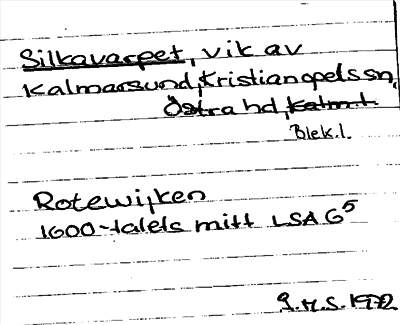 Silkavarpet, vik av
Kalmarsund, Kristianopels sn,
Östra hd, Kalm.l.
Blek.l.
Rotewijken
1600-talets mitt LSA G5
G.M.S. 1972